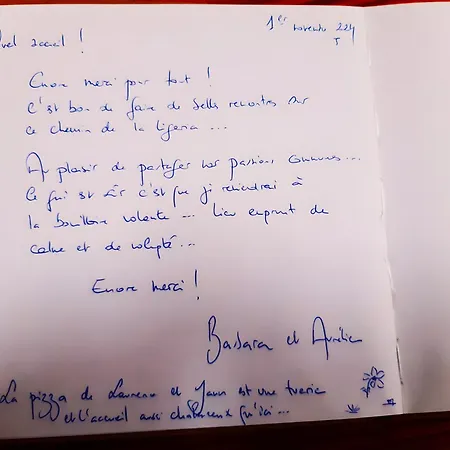 Quel accueil !
1er novembre 224
Encore merci pour tout !
C'est bon de faire de belles rencontres sur
ce chemin de la
Au plaisir de partager nos passions communes...
Ce qui est sûr c'est que je reviendrai à
la bouilloire volante... lieu emprunt de
calme et de volupté...
Encore merci !
Barbara et Aurélien
La pizza de Laurence et Yann est une tuerie
et l'accueil aussi chaleureux qu'ici...